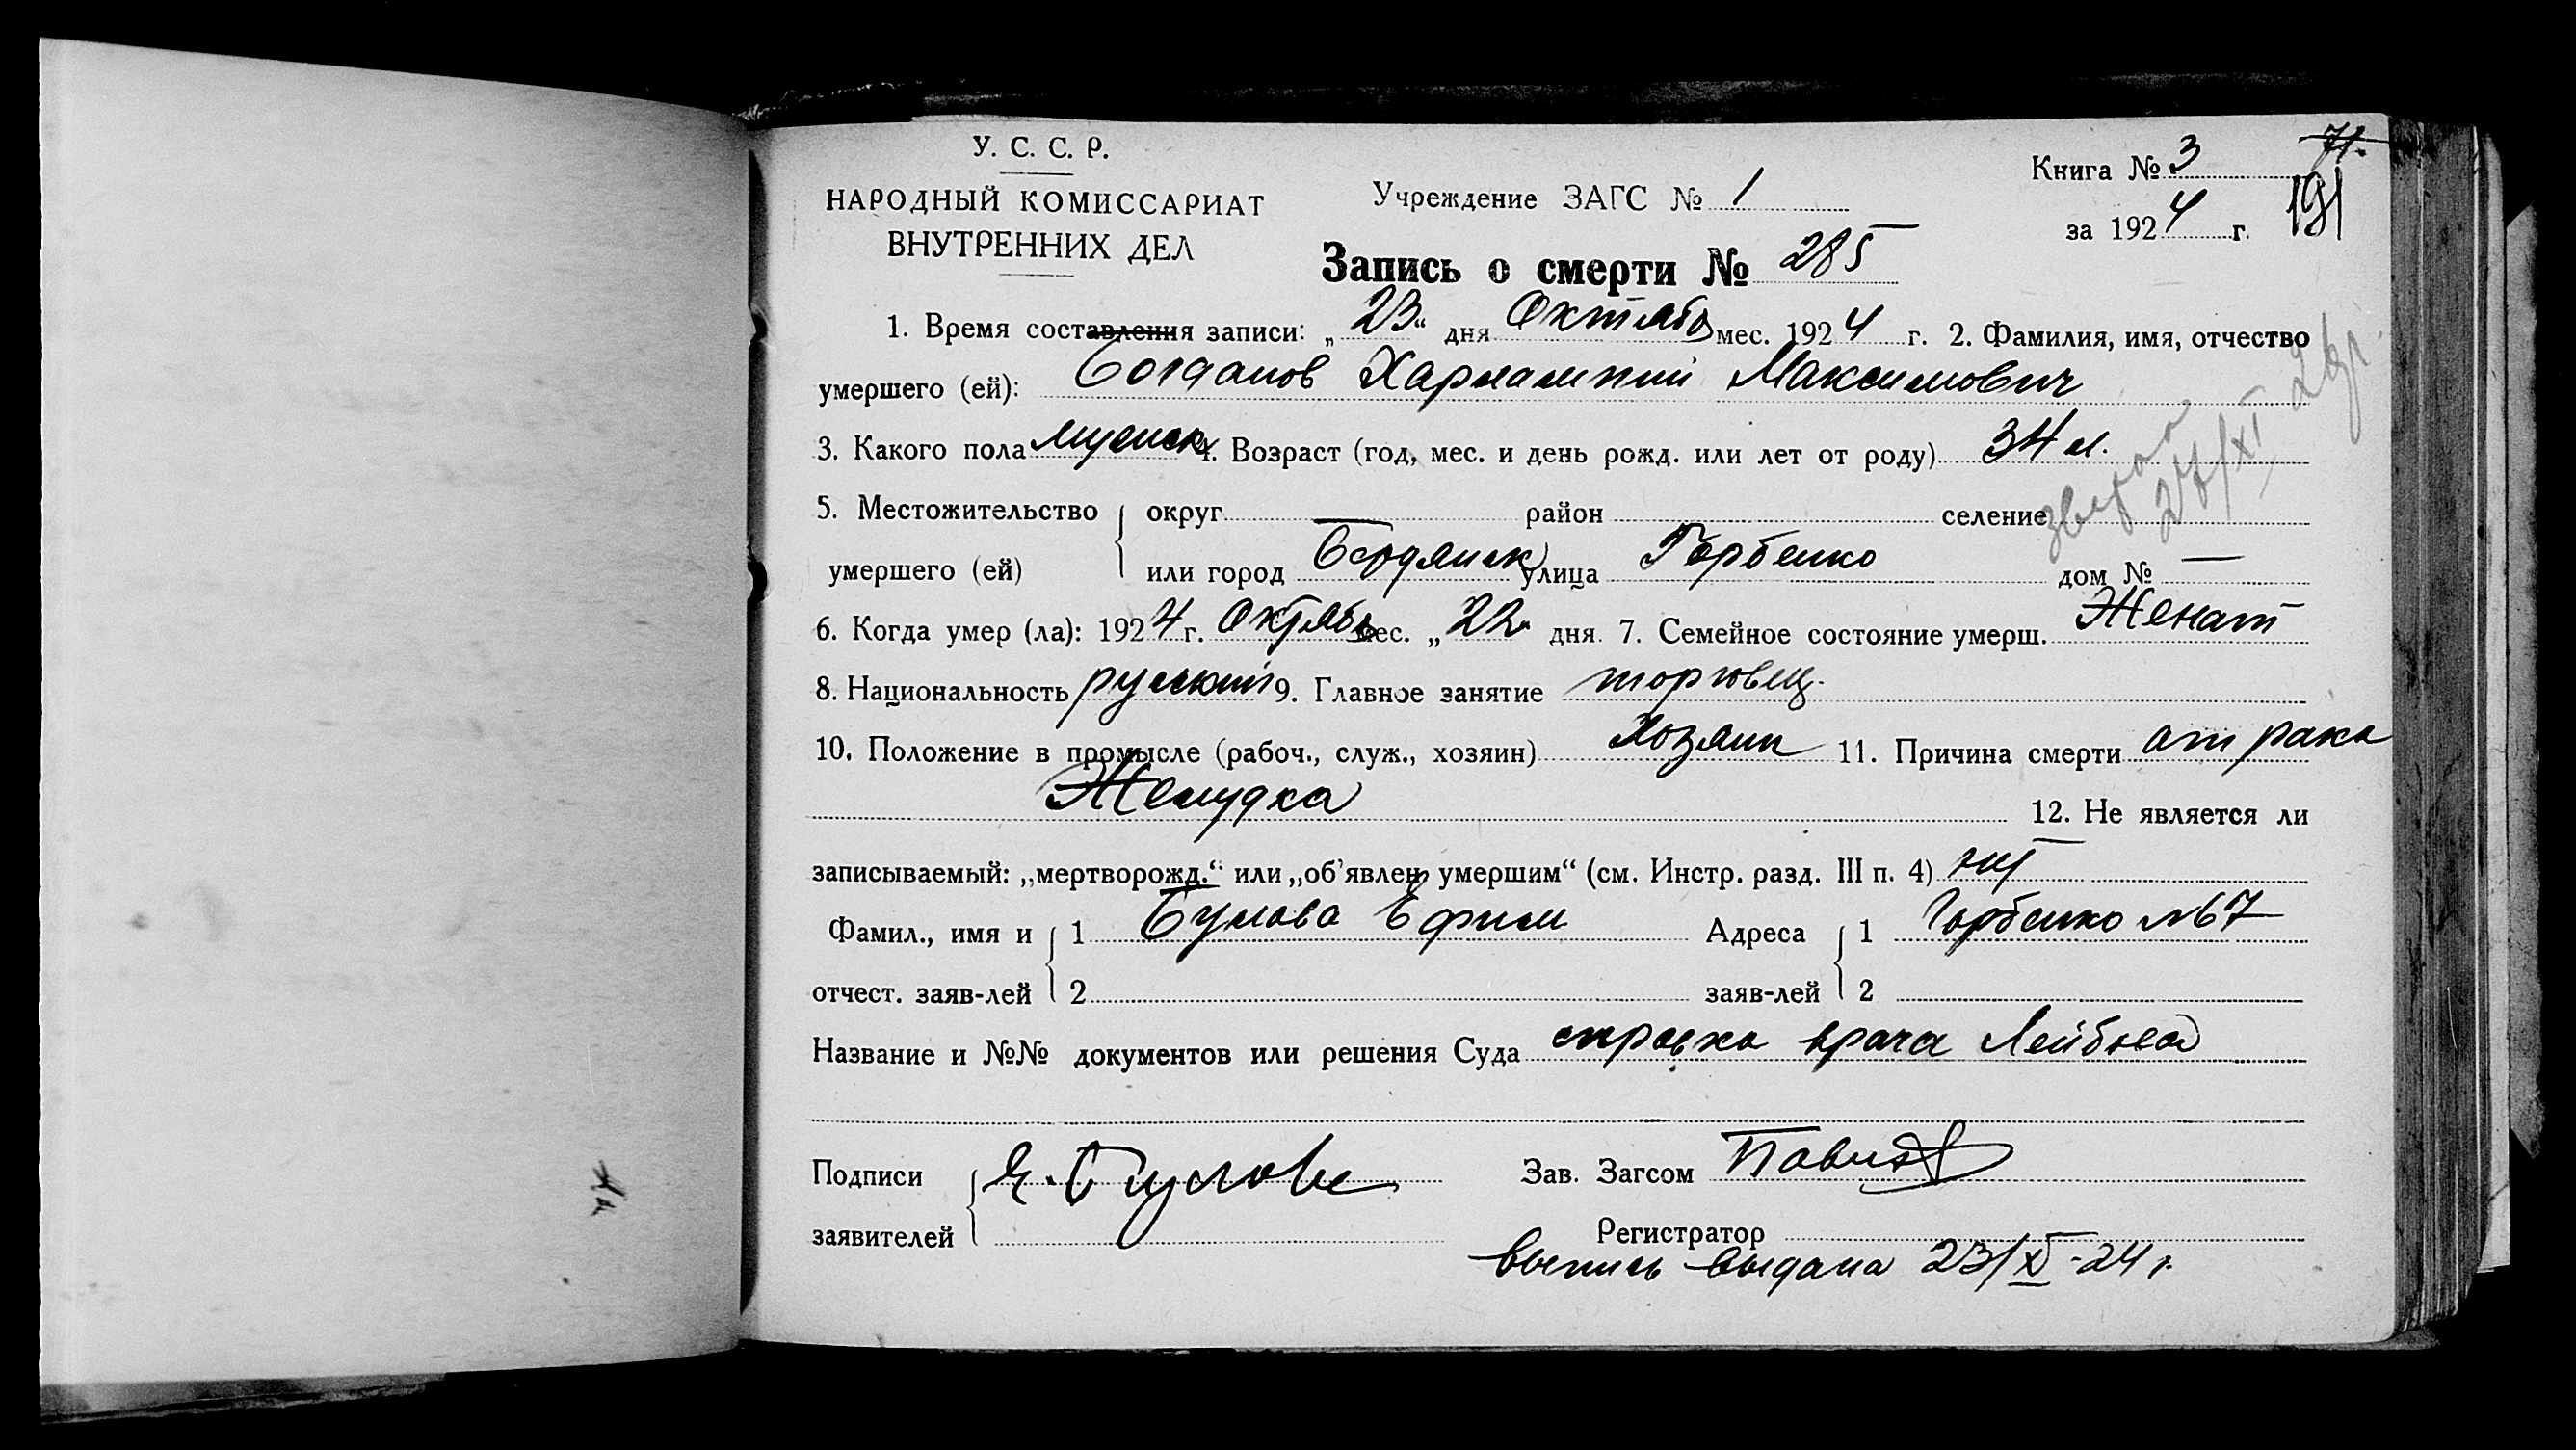 У. С. С. Р.
НАРОДНЫЙ КОМИССАРИАТ
ВНУТРЕННИХ ДЕЛ
Учреждение ЗАГС № 1
Книга № 3
71.
за 1924 г.
191
Запись о смерти № 285
1. Время составления записи: „23“ дня Октябр мес. 1924 г. 2. Фамилия, имя, отчество
умершего (ей): Богданов Харлампий Максимович
3. Какого пола мужск 4. Возраст (год, мес. и день рожд. или лет от роду) 34 л.
5. Местожительство округ район селение
умершего (ей) или город Бердянск улица Горбенко дом № —
6. Когда умер (ла): 1924 г. Октябр мес. „22“ дня. 7. Семейное состояние умерш. Женат
8. Национальность русский 9. Главное занятие торговец.
10. Положение в промысле (рабоч., служ., хозяин) хозяин 11. Причина смерти от рака
Желудка 12. Не является ли
записываемый: „мертворожд.“ или „об’явлен умершим“ (см. Инстр. разд. III п. 4) нет
Фамил., имя и 1 Булава Ефим Адреса 1 Горбенко № 67
отчест. заяв-лей 2 заяв-лей 2
Название и №№ документов или решения Суда справка врача
Подписи Зав. Загсом
заявителей Регистратор
выпись выдана 23/X-24 г.
27/XI 26 г.